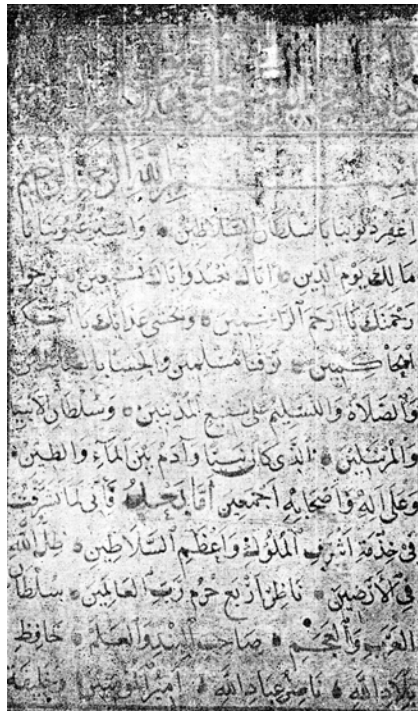 بسم الله الرحمن الرحيم
اغفر ذنوبنا يا سلطان السلاطين واستر عيوبنا يا
مالك يوم الدين اياك نعبد واياك نستعين نرجوا
رحمتك يا ارحم الراحمين ونخشى عذابك يا احكم
الحاكمين توفنا مسلمين والحقنا بالصالحين
والصلاة والتسليم على شفيع المذنبين وسلطان الانبيا
والمرسلين الذي كان نبيا وآدم بين المآء والطين
وعلى آله واصحابه اجمعين اما بعد فاني لما تشرفت
في خدمة اشرف الملوك واعظم السلاطين ظل الله
في الارضين ناظر اربع حرم رب العالمين سلطان
العرب والعجم صاحب البند والعلم حافظ
بلاد الله ناصر عباد الله امير المؤمنين وخليفة